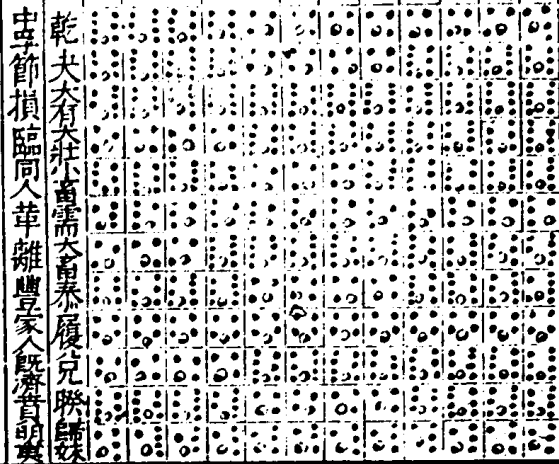 乾夬大有大壯小畜需大畜泰履兌睽歸妹
中孚節損臨同人革離豐家人既濟賁明夷